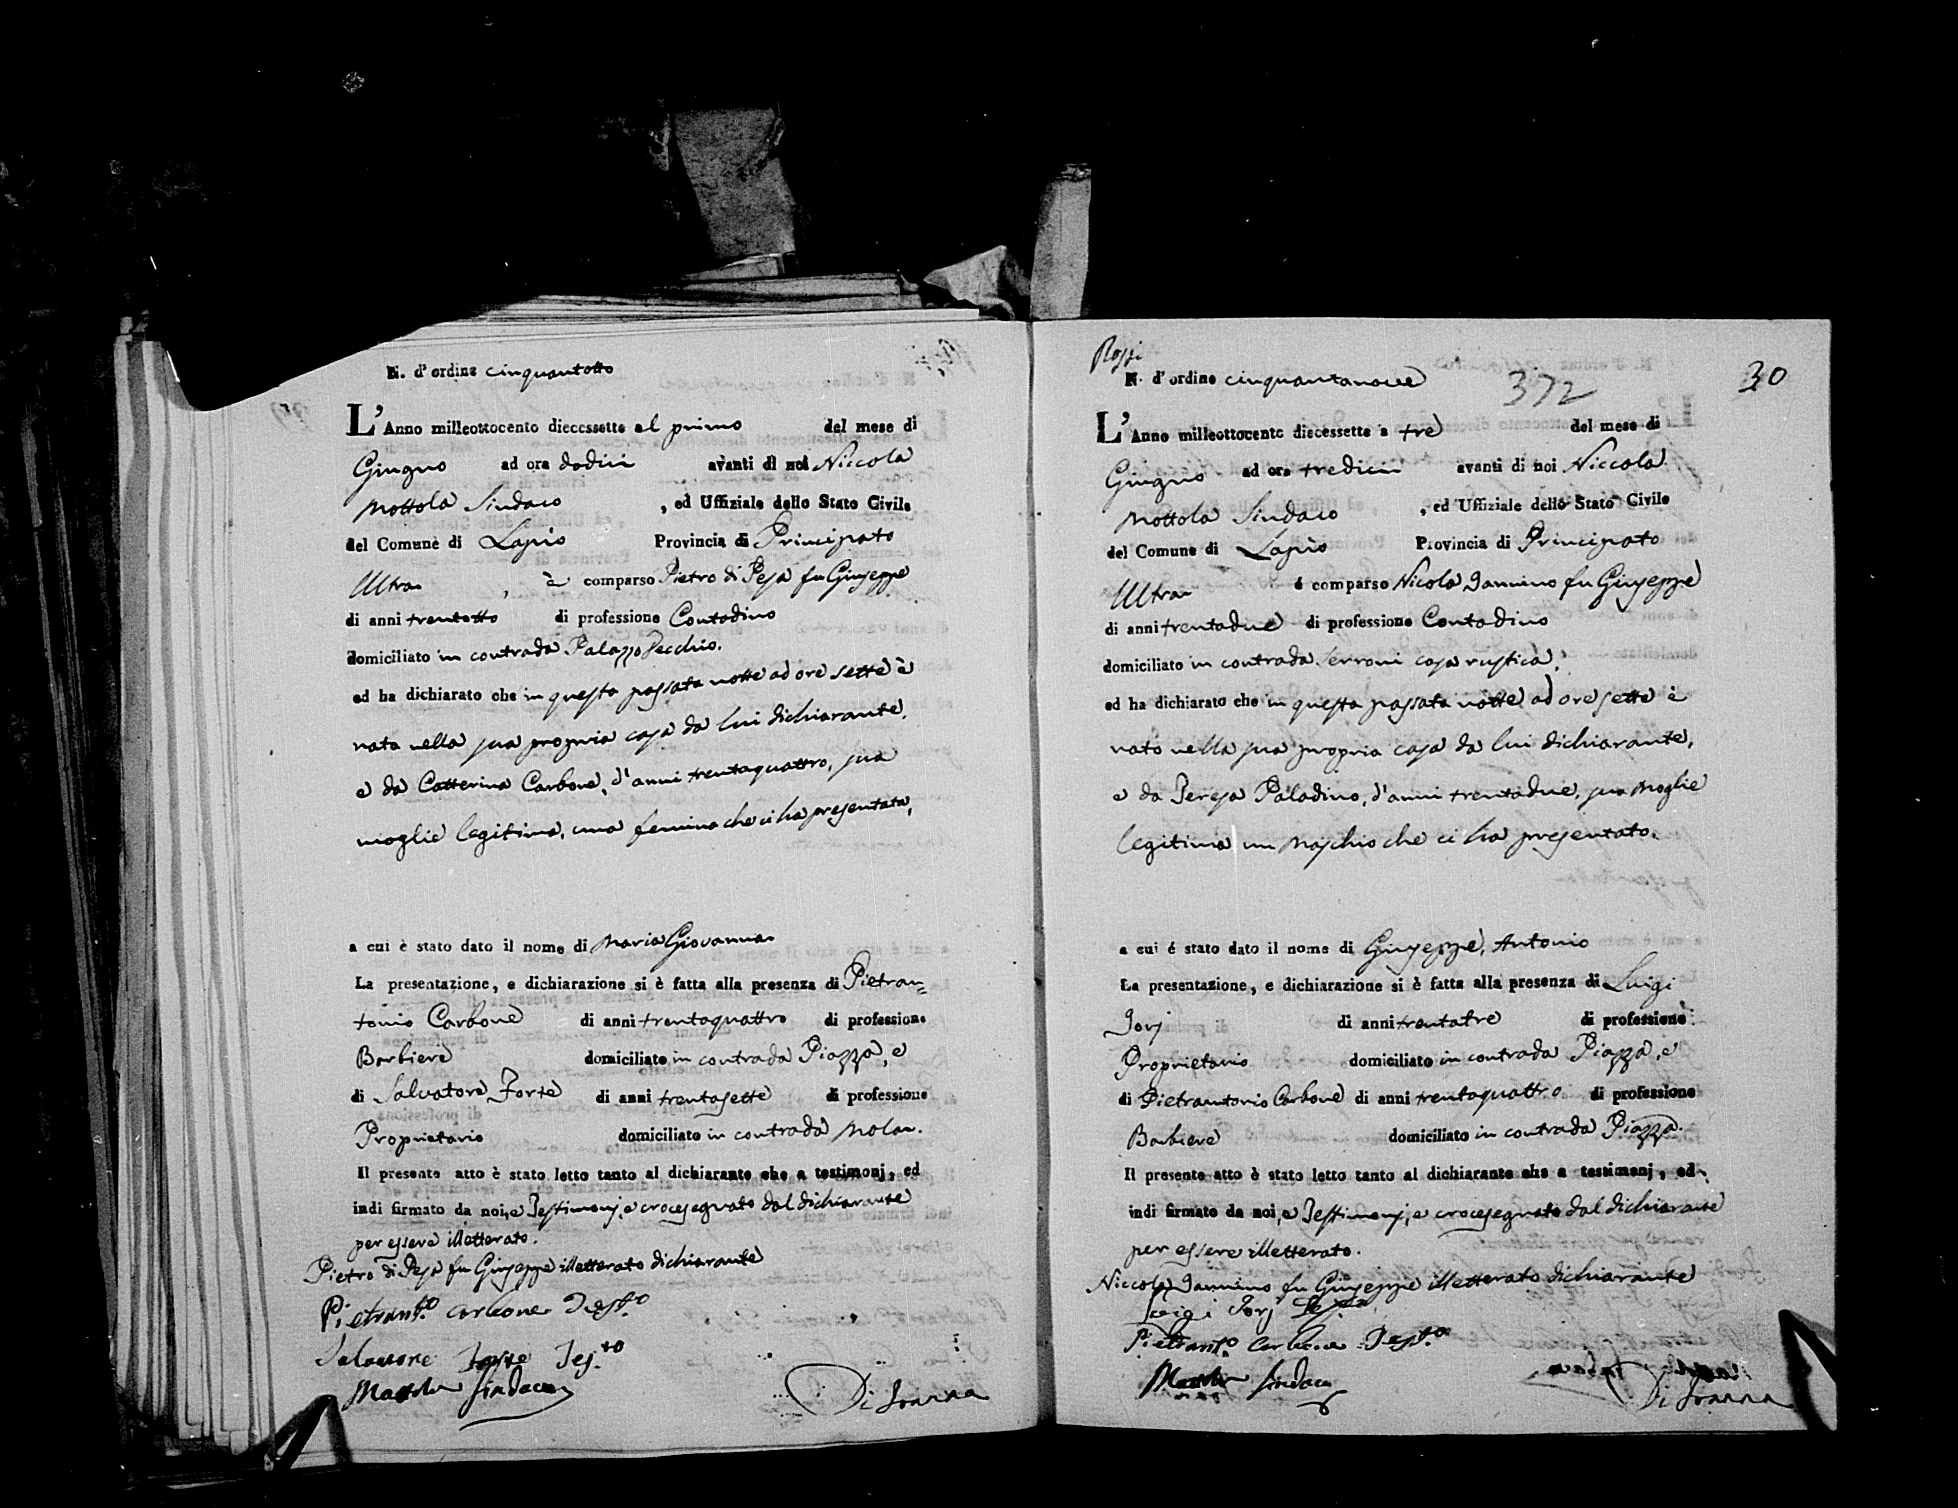 N. d'ordine cinquantotto
L'Anno milleottocento diecessette al primo del mese di
Giugno ad ora dodici avanti di noi Niccola
Mottola Sindaco , ed Uffiziale dello Stato Civile
del Comune di Lapio Provincia di Principato
Ultra , è comparso Pietro di Pesa fu Giuseppe
di anni trentotto di professione Contadino
domiciliato in contrada Palazzo Vecchio.
ed ha dichiarato che in questa passata notte ad ore sette è
nata nella sua propria casa da lui dichiarante,
e da Catterina Carbone, d'anni trentaquattro, sua
moglie legitima, una femina che ci ha presentata,
a cui è stato dato il nome di Maria Giovanna
La presentazione, e dichiarazione si è fatta alla presenza di Pietran=
tonio Carbone di anni trentaquattro di professione
Barbiere domiciliato in contrada Piazza, e
di Salvatore Forte di anni trentasette di professione
Proprietario domiciliato in contrada Mola.
Il presente atto è stato letto tanto al dichiarante che a testimonj, ed
indi firmato da noi, e Testimonj, e crocesegnato dal dichiarante
per essere illetterato.
Pietro di Pesa fu Giuseppe illetterato dichiarante
Pietrant.o Carbone Test.o
Salvatore Forte Tes.to
Mottola Sindaco
Di Joanna
Rossi
N. d'ordine cinquantanove
372
30
L'Anno milleottocento diecessette a tre del mese di
Giugno ad ora tredici avanti di noi Niccola
Mottola Sindaco , ed Uffiziale dello Stato Civile
del Comune di Lapio Provincia di Principato
Ultra é comparso Nicola Iannino fu Giuseppe
di anni trentadue di professione Contadino
domiciliato in contrada Serroni casa rustica,
ed ha dichiarato che in questa passata notte ad ore sette è
nato nella sua propria casa da lui dichiarante,
e da Teresa Paladino, d'anni trentadue, sua Moglie
legitima un Maschio che ci ha presentato.
a cui é stato dato il nome di Giuseppe, Antonio
La presentazione, e dichiarazione si è fatta alla presenza di Luigi
Iorj di anni trentatre di professione
Proprietario domiciliato in contrada Piazza, e
di Pietrantonio Carbone di anni trentaquattro di professione
Barbiere domiciliato in contrada Piazza.
Il presente atto è stato letto tanto al dichiarante che a testimonj, ed
indi firmato da noi, e Testimonj, e crocesegnato dal dichiarante
per essere illetterato.
Niccola Iannino fu Giuseppe illetterato dichiarante
Luigi Iorj
Pietrant.o Carbone Test.o
Mottola Sindaco
Di Joanna